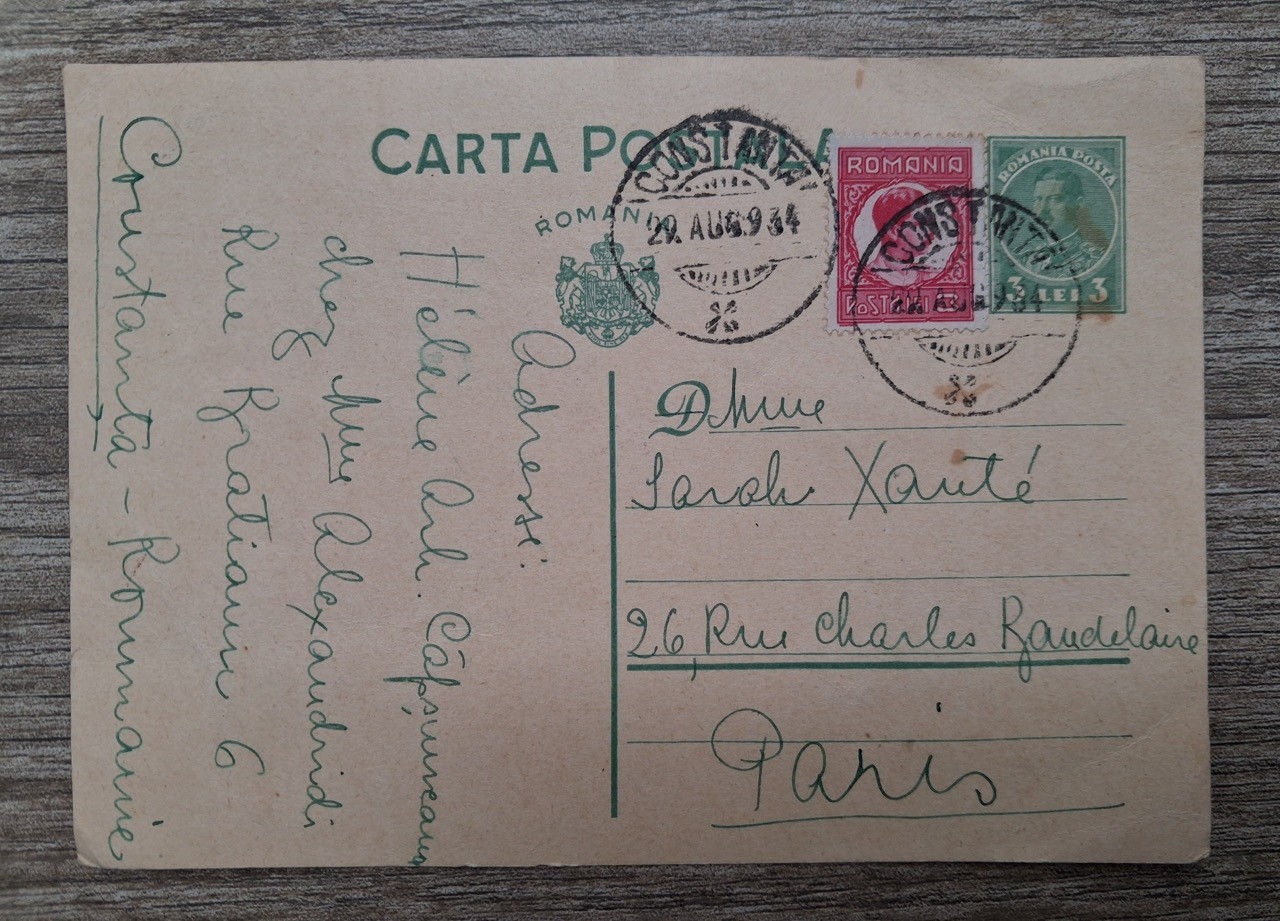 CARTA POSTALA
ROMANIA
CONSTANTA
29. AUG. 934
ROMANIA
POSTA
ROMANIA POSTA
3 LEI 3
CONSTANTA
29. AUG. 934
D Mme
Sarah Xanté
26, Rue Charles Baudelaire
Paris
Adresse:
Hélène Arh.
chez Mme Alexandridi
Rue Bratianu 6
Constanta - Roumanie